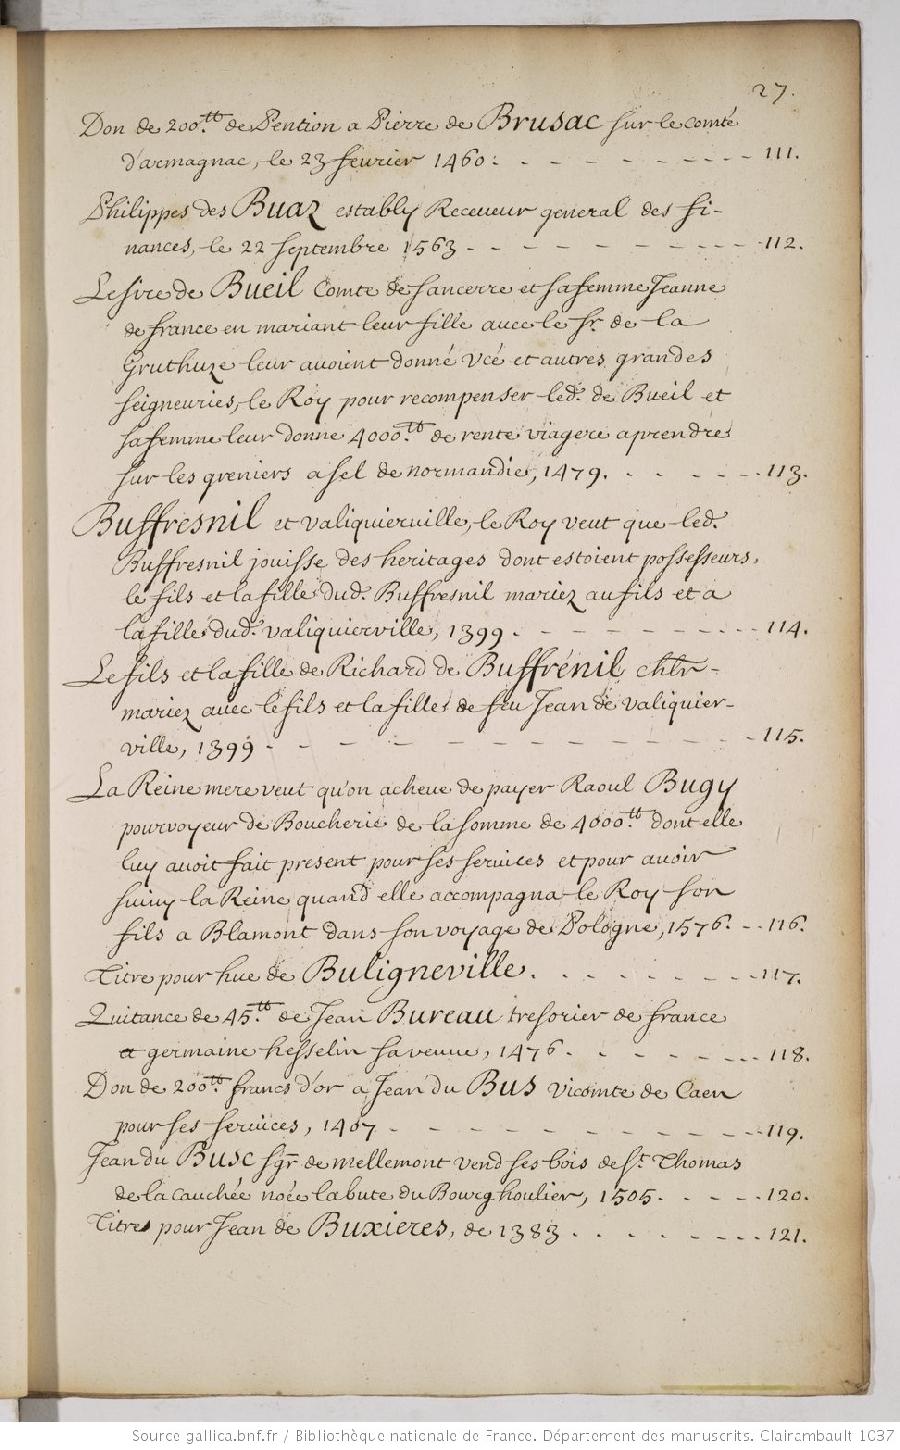 27.
Don de 200.tt de Pention a Pierre de Brusac sur le Comté
d'armagnac, le 23 fevrier 1460. - - - - - - - - - 111.
Philippes des Buaz establÿ Receveur general des fi-
nances, le 22 septembre 1563 - - - - - - - - - 112.
Le sire de Bueil Comte de sancerre et sa femme Jeanne
de france en mariant leur fille avec le sr. de la
Gruthuze leur avoient donné Vcé et autres grandes
seigneuries, le Roy pour recompenser led. de Bueil et
sa femme leur donne 4000.tt de rente viagere a prendre
sur les greniers a sel de normandie, 1479. - - - - - 113.
Buffresnil et valiquierville, le Roy veut que led.
Buffresnil jouisse des heritages dont estoient possesseurs,
le fils et la fille dud. Buffresnil mariez au fils et a
la fille dud. valiquierville, 1399. - - - - - - - - 114.
Le fils et la fille de Richard de Buffrénil chlr
mariez avec le fils et la fille de feu Jean de valiquier-
ville, 1399 - - - - - - - - - - - - - - 115.
La Reine mere veut qu'on acheve de payer Raoul Bugy
pourvoyeur de Boucherie de la somme de 4000.tt dont elle
luy avoit fait present pour ses services et pour avoir
suivy la Reine quand elle accompagna le Roy son
fils a Blamont dans son voyage de Pologne, 1576. - - 116.
Titre pour hue de Buligneville. - - - - - - - 117.
Quitance de 45.tt de Jean Bureau tresorier de france
a germaine hesselin sa veuve, 1476. - - - - - - - 118.
Don de 200.tt francs d'or a Jean du Bus vicomte de Caen
pour ses services, 1407 - - - - - - - - - - - 119.
Jean du Busc sgr de mellemont vend ses bois de st. Thomas
de la cauchée noée la bute du Bourghoulier, 1505. - - - - 120.
Titre pour Jean de Buxieres, de 1383 - - - - - - - 121.
Source gallica.bnf.fr / Bibliothèque nationale de France. Département des manuscrits. Clairambault 1037